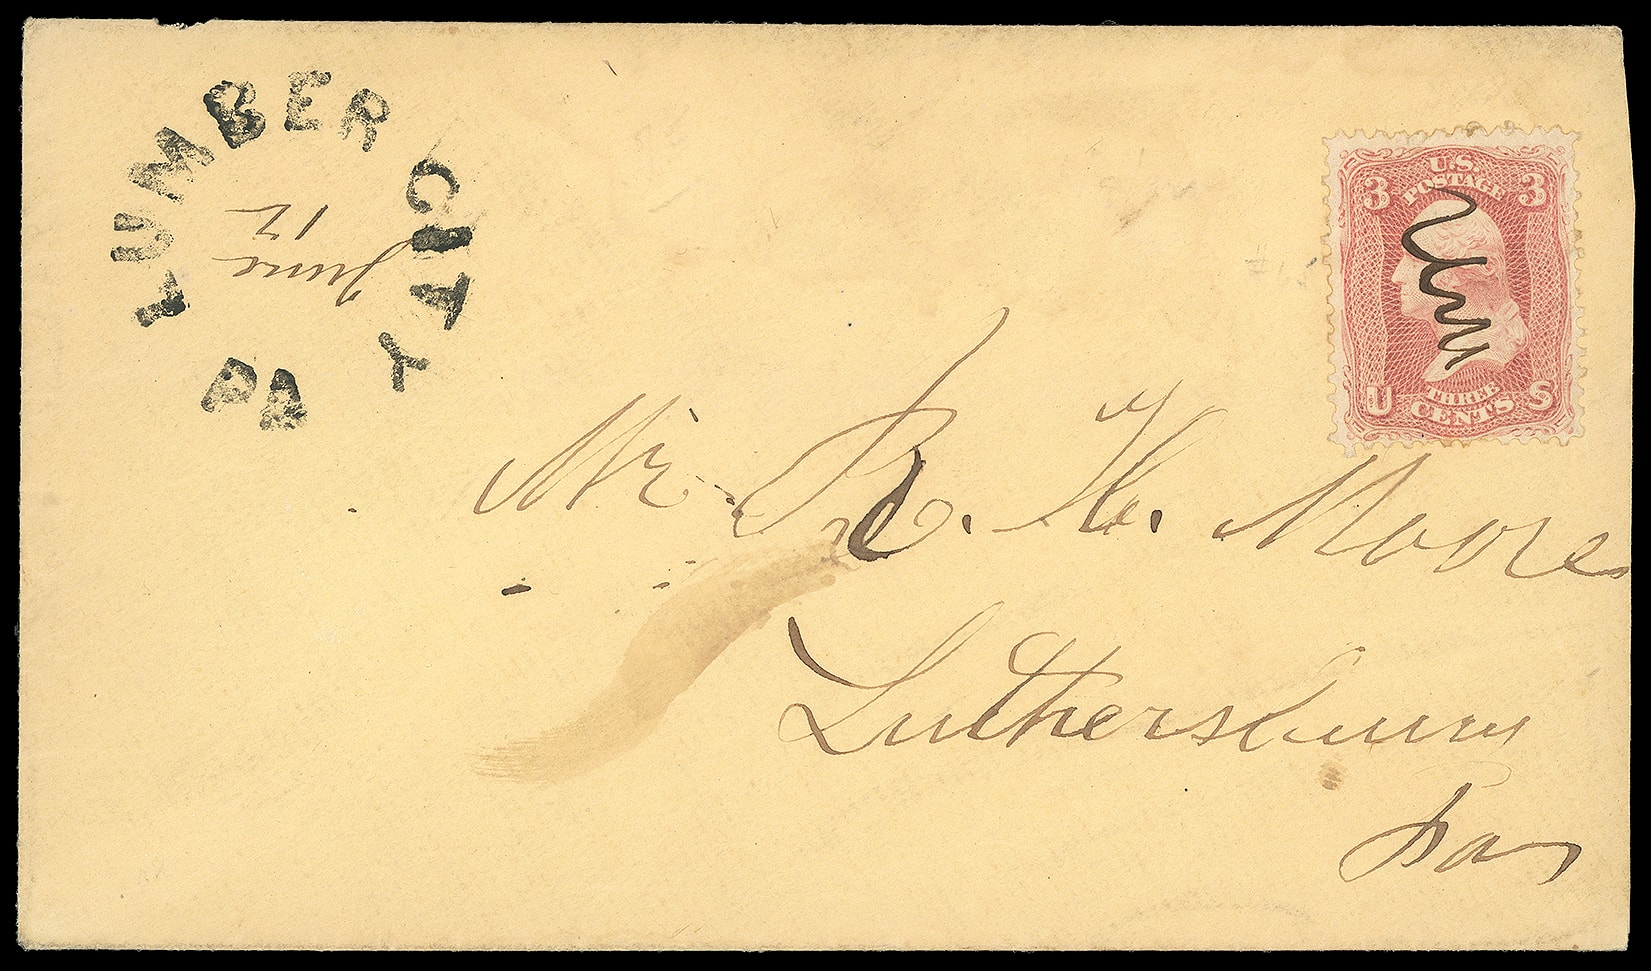 LUMBER CITY
PA
June
12
U.S.
POSTAGE
3 3
THREE
CENTS
U S
Mr R. H. Moore
Luthersburg
Pa